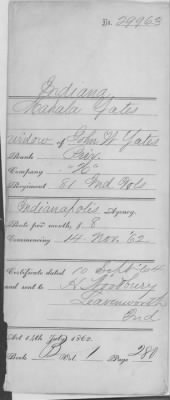 No. 29963
Indiana
Mahala Yates
widow of John W Yates
Rank Priv.
Company "H"
Regiment 81 Ind Vols
Indianapolis Agency.
Rate per month, $ 8
Commencing 14 Nov. '62
Certificate dated 10 Sept '64
and sent to H Woodbury
Leavenworth
Ind
Act 14th July 1862.
Book B Vol. 1 Page 280